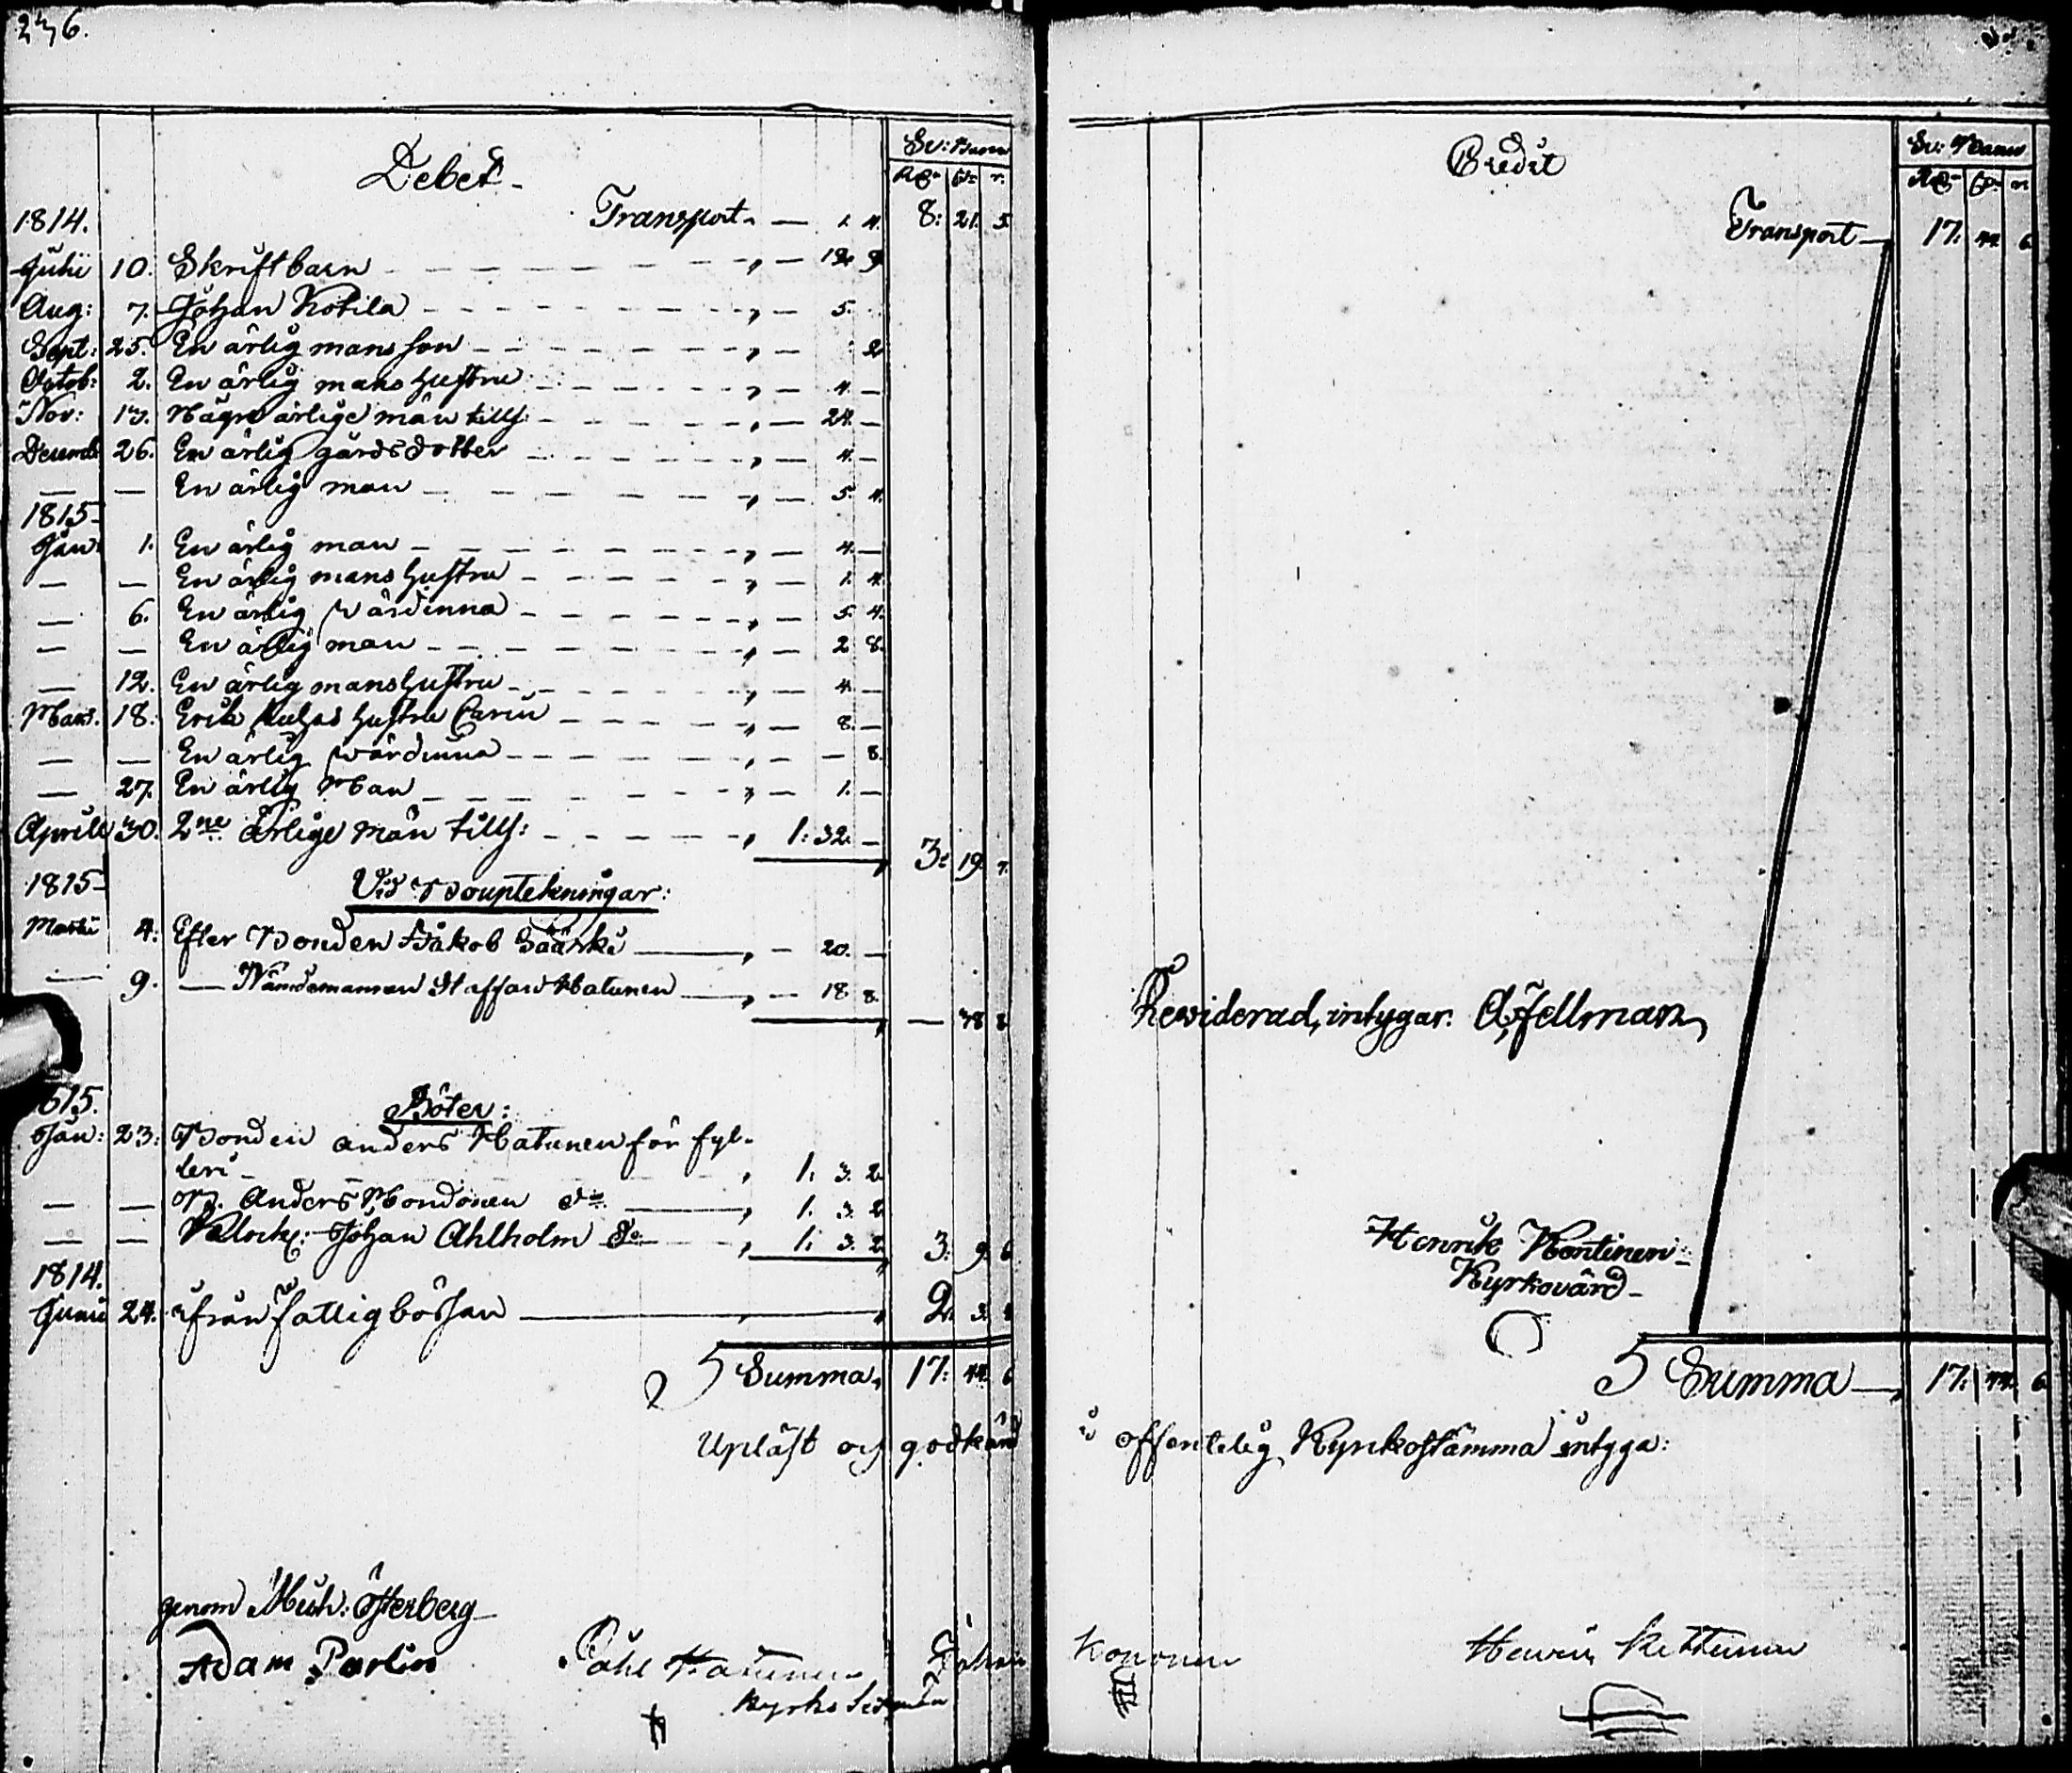 236.
Debet.
Sv: Banco
Rd sk r.
1814. Transport. — 1. 4. 8: 21. 5.
Julii 10. Skriftbarn „ — 12. 9
Aug: 7. Johan Kotila „ — 5.
Sept: 25. En ärlig mans son „ — 2
Octob: 2. En ärlig mans hustru „ — 4. —
Nov: 13. Några ärlige män tills: „ — 24. —
Decemb 26. En ärlig gårdsdotter „ — 4. —
— — En ärlig man „ — 5. 4.
1815.
Jan: 1. En ärlig man „ — 4. —
— — En ärlig mans hustru „ — 1. 4.
— 6. En ärlig Wärdinna „ — 5. 4.
— — En ärlig man „ — 2 8.
— 12. En ärlig mans hustru „ — 4. —
Mars. 18. Erik hustru Carin „ — 8. —
— — En ärlig wärdinna „ — — 8.
— 27. En ärlig Man „ — 1. —
Aprill 30. 2ne ärlige män tills: „ 1: 32. —
3: 19. 7.
1815. Vid Boupteckningar:
Martii 4. Efter Bonden Jakob „ — 20. —
— 9. — Nämdemannen Staffan Hatunen „ — 18 8.
— 38 8
1815. Böter:
Jan: 23: Bonden Anders Hatunen för fyl-
leri „ 1. 3. 2
— — B. Anders do „ 1. 3. 2
— — Klock: Johan Ahlholm do „ 1: 3. 2 3. 9. 6
1814.
Junii 24. ifrån Fattigbössan 2. 3.
S Summa „ 17: 44. 6
Upläst och godkänd
genom Mich: Österberg
Adam Parlin Påhl Hatunen Johan
Kyrko
Credit
Sv: Banco
Rd sk r.
Transport — 17. 44. 6
Reviderad, intygar. A, Fellman
Henrik Kontinen
Kyrkovärd
S Summa — 17. 44. 6
i offentelig Kyrkostämma intyga:
Kononen Henrik Kettunen